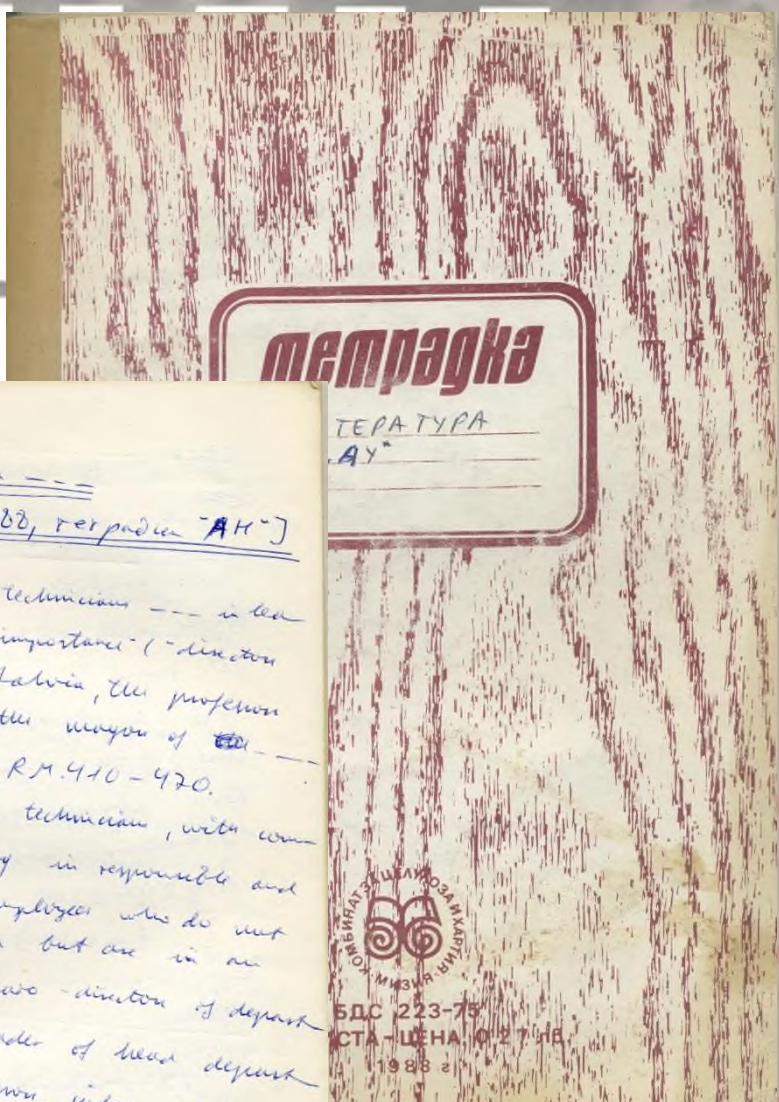 тетрадка
ТЕРАТУРА
"АУ"
88, тетрадка "АН"]
technicians --- in lea
importance" ("director
the profession
the mayor of ---
R.M. 410-470.
technicians, with com
in responsible and
employees who do not
but are in an
director of depart
of head depart
КОМБИНАТ ЗА ЦЕЛУЛОЗА И ХАРТИЯ
БДС 223-75
СТА - ЦЕНА 0.27 лв.
1988 г.